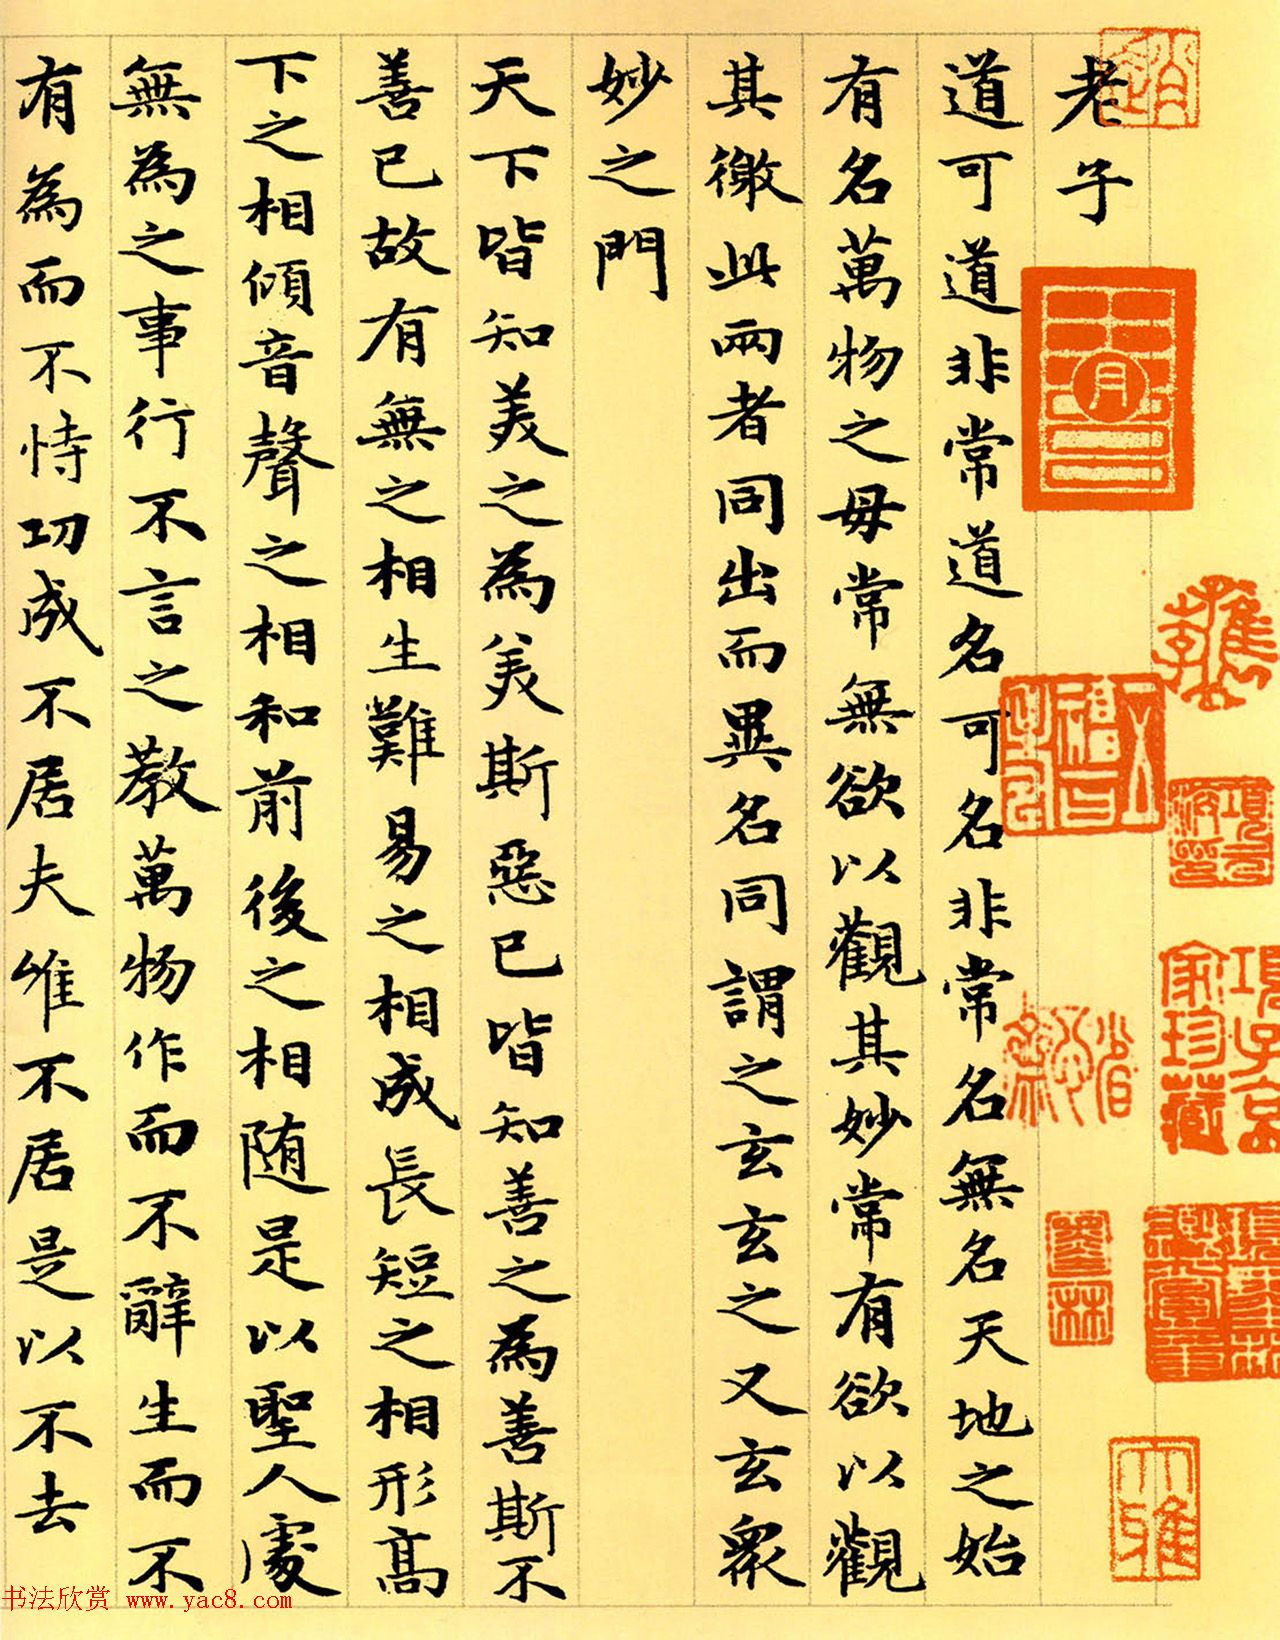 老子
道可道非常道名可名非常名無名天地之始
有名萬物之母常無欲以觀其妙常有欲以觀
其徼此兩者同出而異名同謂之玄玄之又玄衆
妙之門
天下皆知美之為美斯惡已皆知善之為善斯不
善已故有無之相生難易之相成長短之相形高
下之相傾音聲之相和前後之相随是以聖人處
無為之事行不言之教萬物作而不辭生而不
有為而不恃功成不居夫惟不居是以不去
項子京
家珍藏
大雅
书法欣赏 www.yac8.com